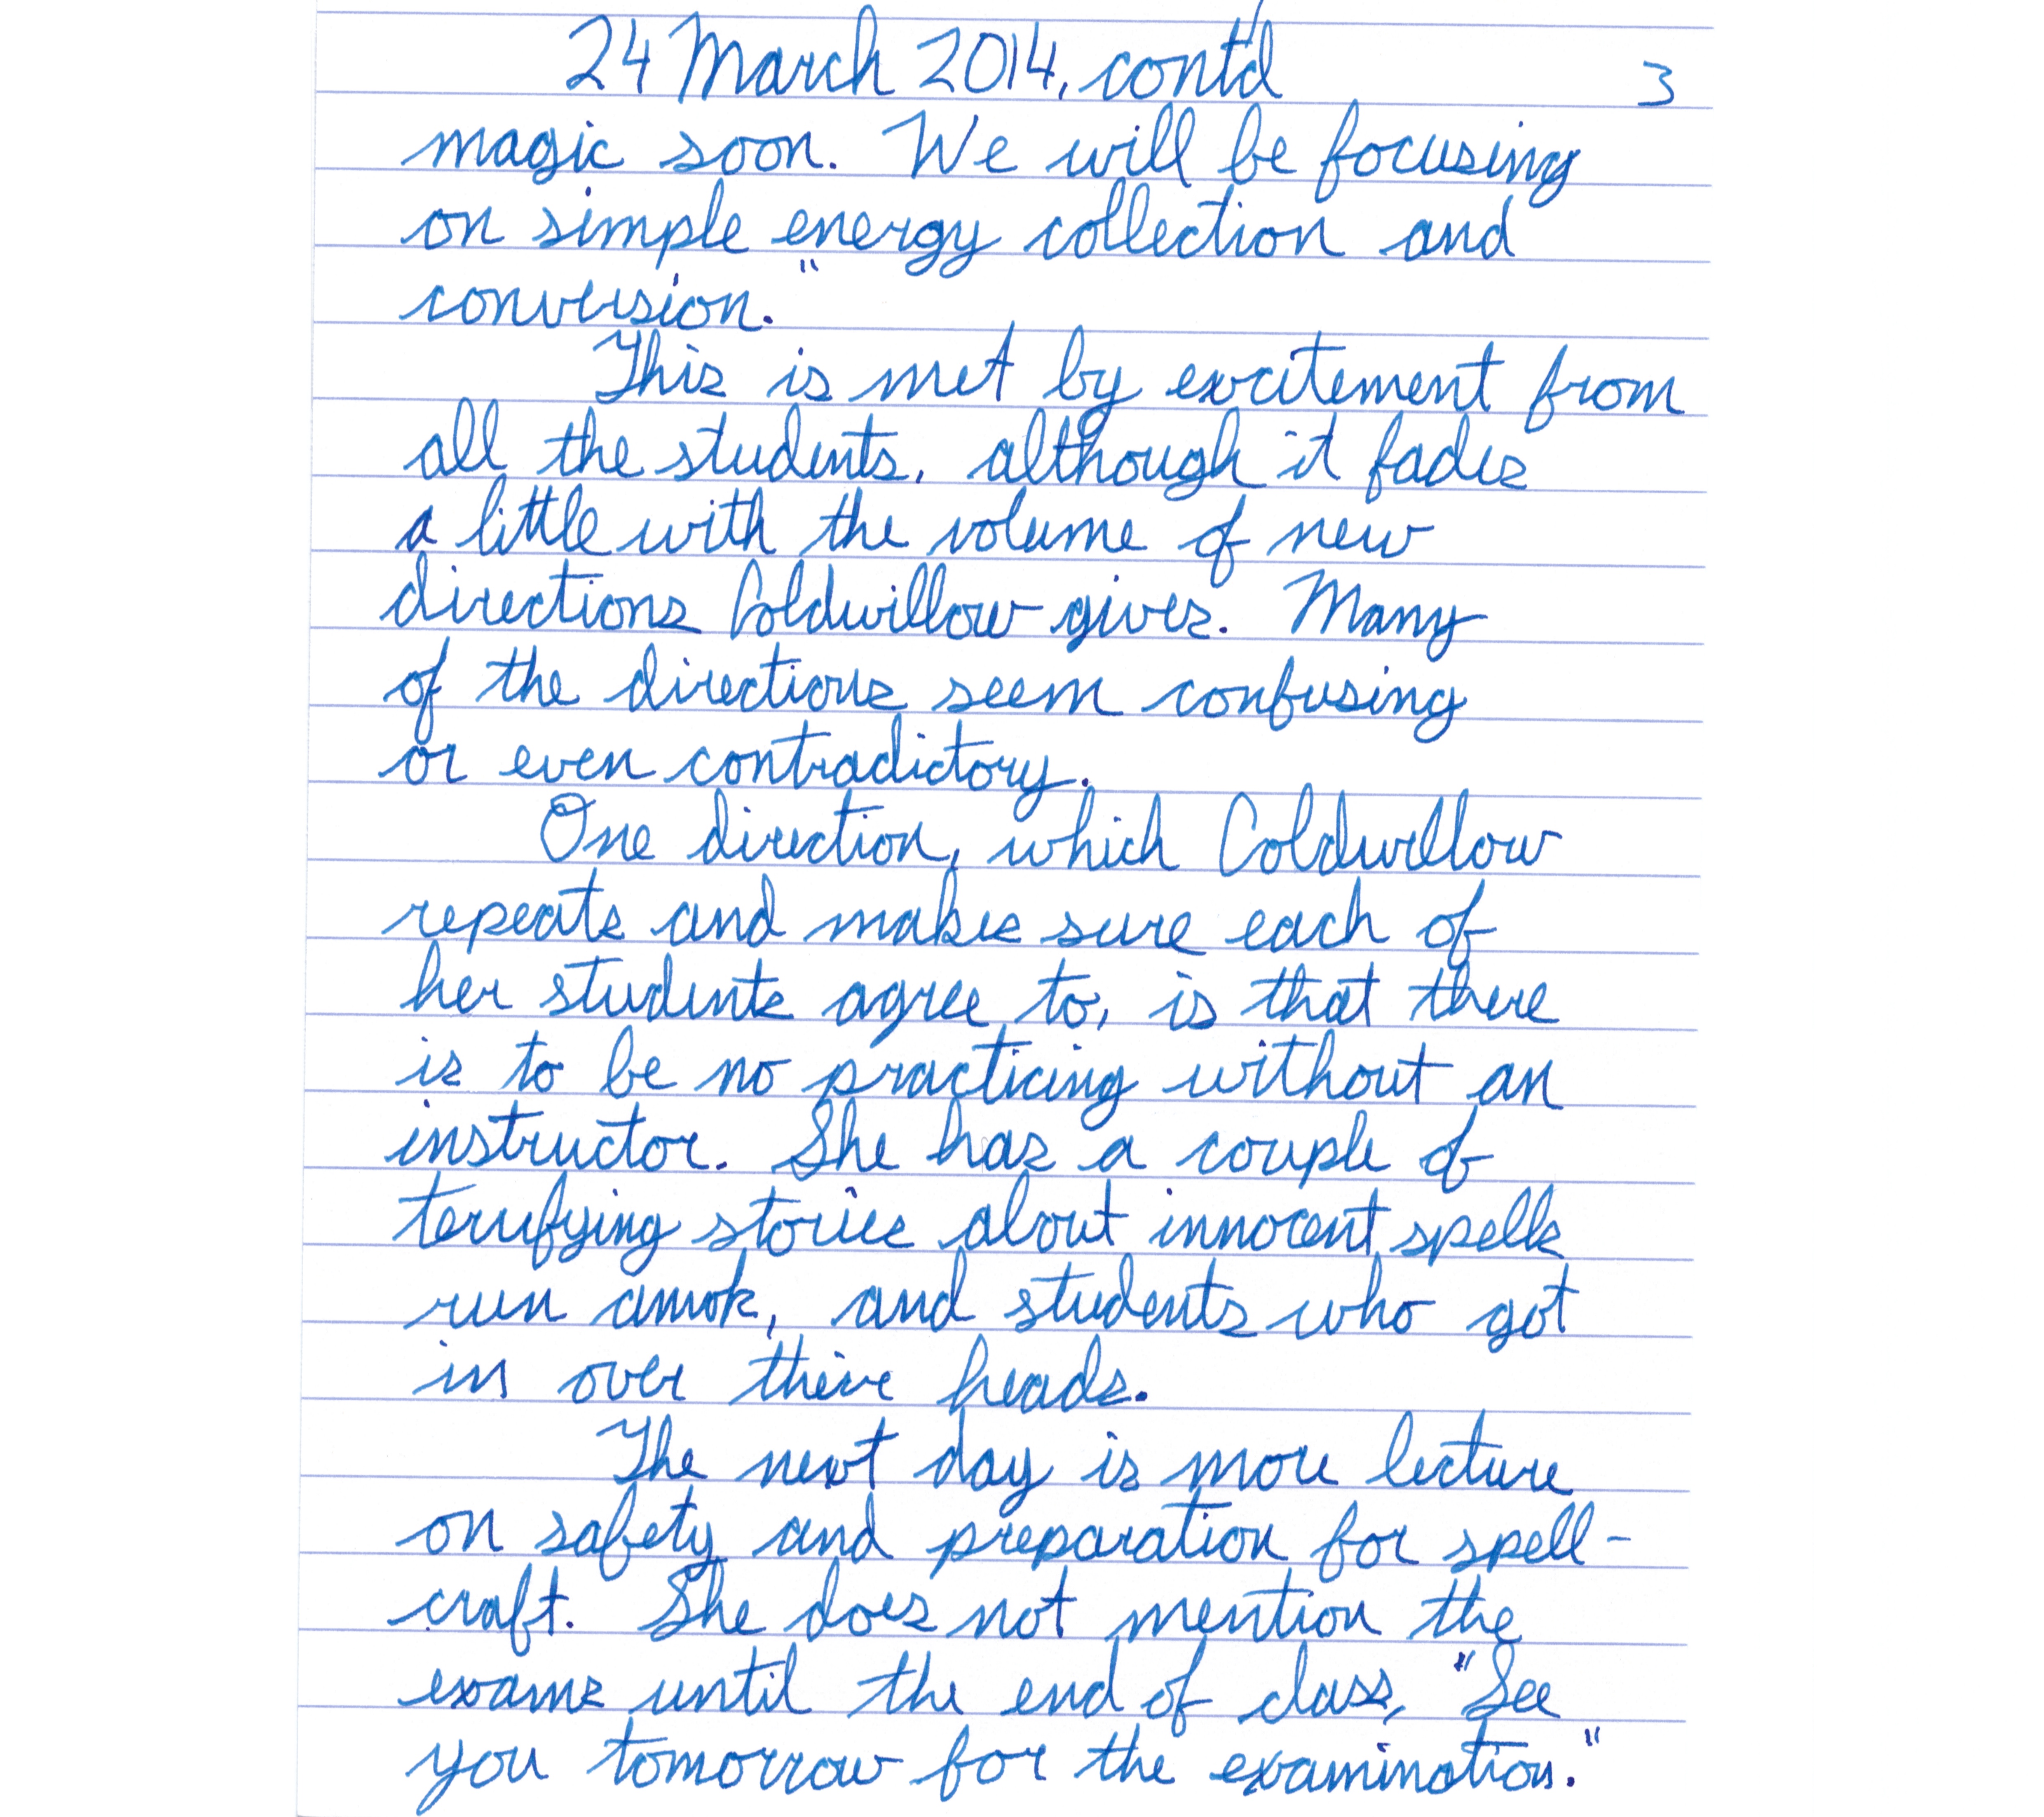 24 March 2014, cont'd 3
magic soon. We will be focusing
on simple energy collection and
conversion."
This is met by excitement from
all the students, although it fades
a little with the volume of new
directions Coldwillow gives. Many
of the directions seem confusing
or even contradictory.
One direction, which Coldwillow
repeats and makes sure each of
her students agree to, is that there
is to be no practicing without an
instructor. She has a couple of
terrifying stories about innocent spells
run amok, and students who got
in over their heads.
The next day is more lecture
on safety and preparation for spell-
craft. She does not mention the
exams until the end of class, "See
you tomorrow for the examination."